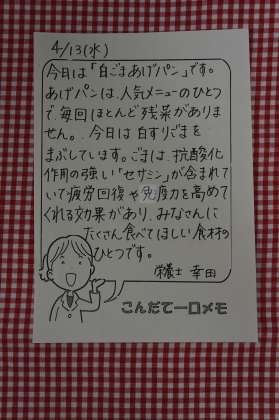 4/13(水)
今日は「白ごまあげパン」です。
あげパンは、人気メニューのひとつ
で毎回ほとんど残菜がありま
せん。今日は白すりごまを
まぶしています。ごまは、抗酸化
作用の強い「セサミン」が含まれて
いて疲労回復や免疫力を高めて
くれる効果があり、みなさんに
たくさん食べてほしい食材の
ひとつです。
栄養士 幸田
こんだて一口メモ